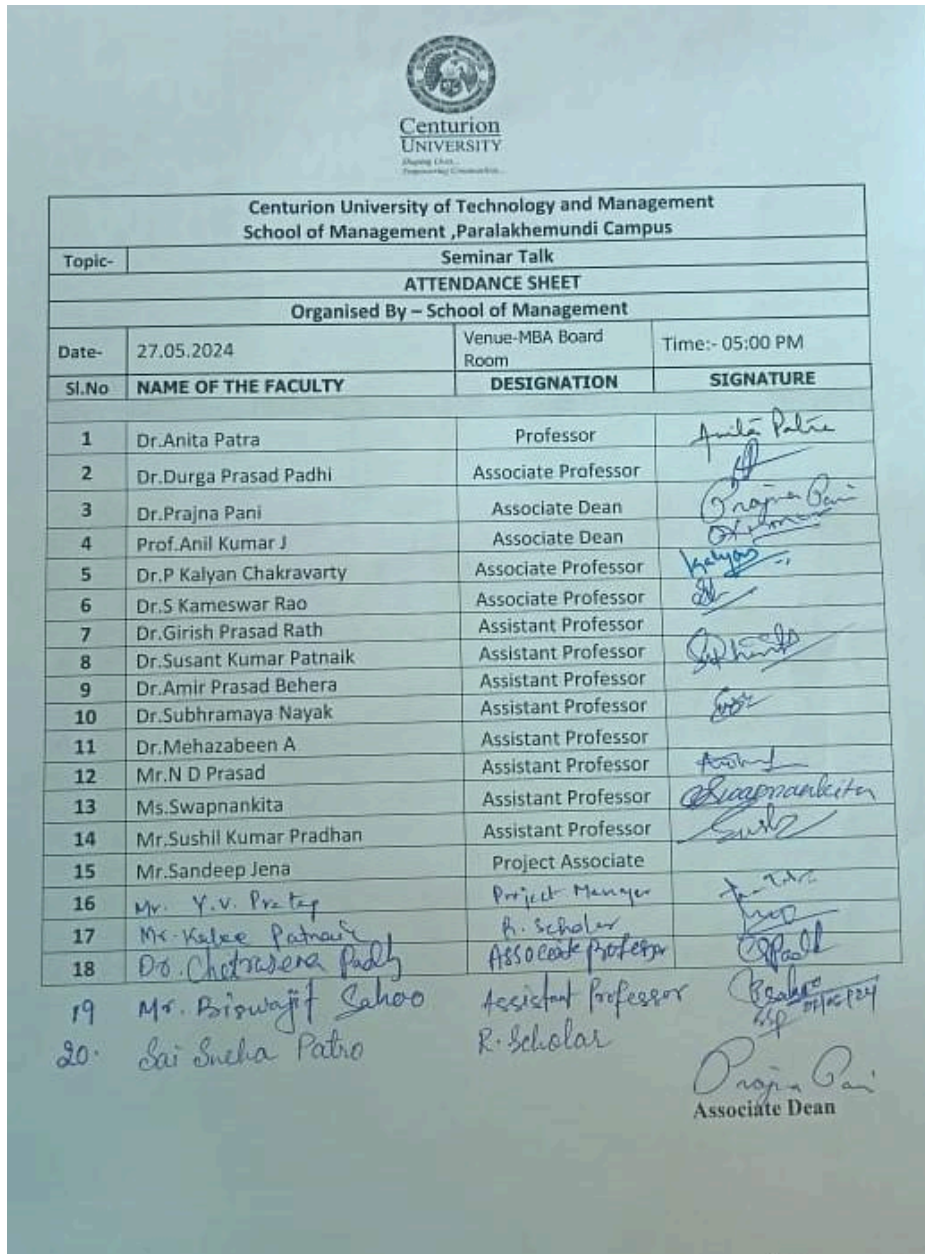 Centurion
UNIVERSITY
Shaping Lives...
Empowering Communities...
Centurion University of Technology and Management
School of Management ,Paralakhemundi Campus
Topic- Seminar Talk
ATTENDANCE SHEET
Organised By – School of Management
Date- 27.05.2024 Venue-MBA Board Room Time:- 05:00 PM
Sl.No NAME OF THE FACULTY DESIGNATION SIGNATURE
1 Dr.Anita Patra Professor Anita Patra
2 Dr.Durga Prasad Padhi Associate Professor
3 Dr.Prajna Pani Associate Dean Prajna Pani
4 Prof.Anil Kumar J Associate Dean
5 Dr.P Kalyan Chakravarty Associate Professor Kalyan
6 Dr.S Kameswar Rao Associate Professor
7 Dr.Girish Prasad Rath Assistant Professor
8 Dr.Susant Kumar Patnaik Assistant Professor
9 Dr.Amir Prasad Behera Assistant Professor
10 Dr.Subhramaya Nayak Assistant Professor
11 Dr.Mehazabeen A Assistant Professor
12 Mr.N D Prasad Assistant Professor
13 Ms.Swapnankita Assistant Professor Swapnankita
14 Mr.Sushil Kumar Pradhan Assistant Professor
15 Mr.Sandeep Jena Project Associate
16 Mr. Y.V. Pratap Project Manager
17 Patnaik R. Scholar
18 Dr. Chetrasena Padhy Associate Professor
19 Mr. Biswajit Sahoo Assistant Professor
20. Sai Sneha Patro R. Scholar
Prajna Pani
Associate Dean